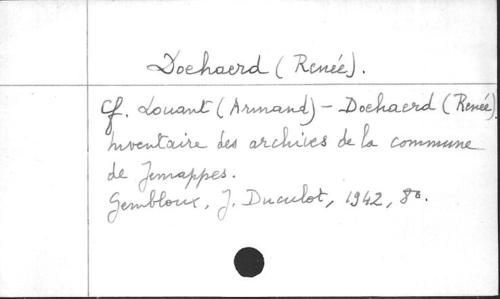 Doehaerd (Renée).
cf. Louant (Armand) - Doehaerd (Renée).
Inventaire des archives de la commune
de Jemappes.
Gembloux, J. Duculot, 1942, 8º.